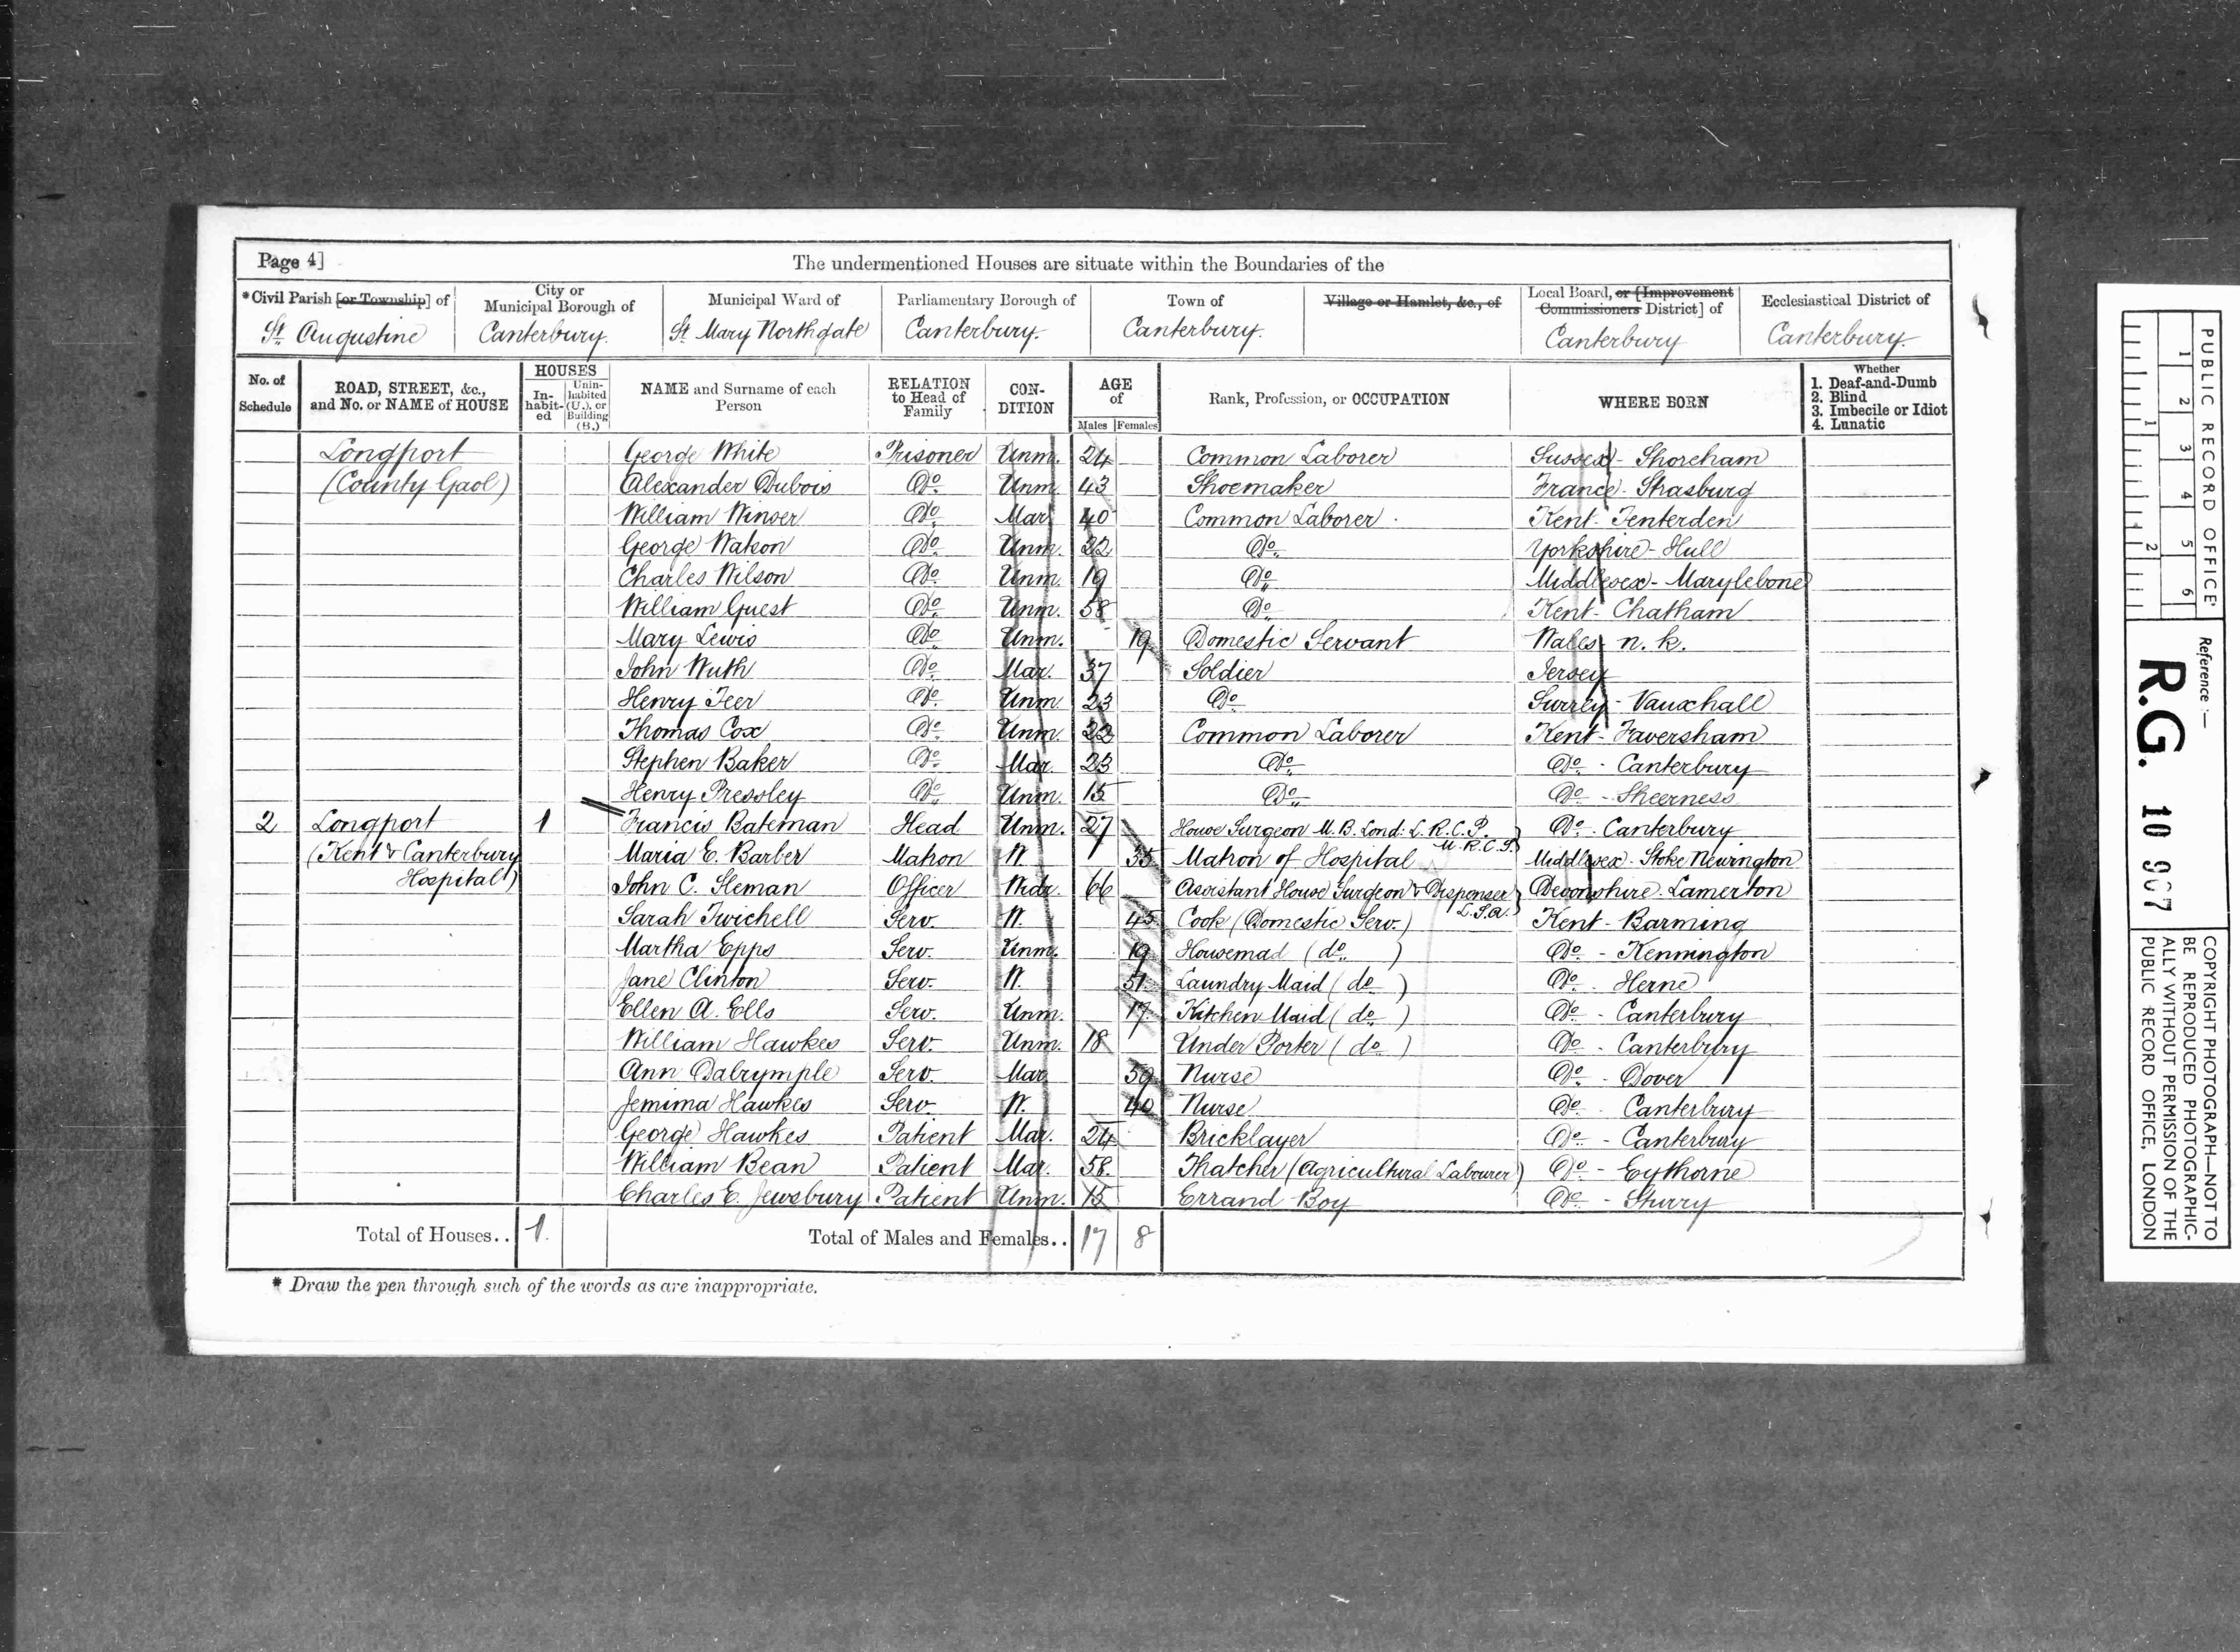 Page 4]
The undermentioned Houses are situate within the Boundaries of the
*Civil Parish [or Township] of
City or Municipal Borough of
Municipal Ward of
Parliamentary Borough of
Town of
Village or Hamlet, &c., of
Local Board, or [Improvement Commissioners District] of
Ecclesiastical District of
St Augustine
Canterbury.
St Mary Northgate
Canterbury.
Canterbury.
Canterbury
Canterbury.
No. of Schedule
ROAD, STREET, &c., and No. or NAME of HOUSE
HOUSES
In-habit-ed
Unin-habited (U.), or Building (B.)
NAME and Surname of each Person
RELATION to Head of Family
CON-DITION
AGE of
Males
Females
Rank, Profession, or OCCUPATION
WHERE BORN
Whether
1. Deaf-and-Dumb
2. Blind
3. Imbecile or Idiot
4. Lunatic
Longport George White Prisoner Unm. 24 Common Laborer Sussex - Shoreham
(County Gaol) Alexander Dubois Do. Unm 43 Shoemaker France - Strasburg
William Winser Do. Mar 40 Common Laborer Kent - Tenterden
George Watson Do. Unm. 22 Do. Yorkshire - Hull
Charles Wilson Do. Unm. 19 Do. Middlesex - Marylebone
William Guest Do. Unm. 58 Do. Kent - Chatham
Mary Lewis Do. Unm. 19 Domestic Servant Wales n. k.
John Wuth Do. Mar. 37 Soldier Jersey
Henry Teer Do. Unm 23 Do. Surrey - Vauxhall
Thomas Cox Do. Unm. 22 Common Laborer Kent - Faversham
Stephen Baker Do. Mar. 23 Do. Do. - Canterbury
Henry Pressley Do. Unm. 15 Do. Do. - Sheerness
2 Longport 1 Francis Bateman Head Unm. 27 House Surgeon M.B. Lond: L.R.C.P. M.R.C.S. Do. - Canterbury
(Kent & Canterbury Maria E. Barber Matron W. 35 Matron of Hospital Middlesex - Stoke Newington
Hospital) John C. Sleman Officer Widr. 66 Assistant House Surgeon & Dispenser L.S.A. Devonshire - Lamerton
Sarah Twichell Serv. W. 45 Cook (Domestic Serv.) Kent - Barming
Martha Epps Serv. Unm. 19 Housemad (do.) Do. - Kennington
Jane Clinton Serv. W. 51 Laundry Maid (do) Do. - Herne
Ellen A. Ells Serv. Unm. 17 Kitchen Maid (do) Do. - Canterbury
William Hawkes Serv. Unm. 18 Under Porter (do) Do. - Canterbury
Ann Dalrymple Serv. Mar 59 Nurse Do. - Dover
Jemima Hawkes Serv. W. 40 Nurse Do. Canterbury
George Hawkes Patient Mar. 24 Bricklayer Do. - Canterbury
William Bean Patient Mar. 58. Thatcher (Agricultural Labourer) Do. - Eythorne
Charles E. Jewsbury Patient Unm. 15 Errand Boy Do. - Sturry
Total of Houses.. 1. Total of Males and Females.. 17 8
* Draw the pen through such of the words as are inappropriate.
PUBLIC RECORD OFFICE
1 2 3 4 5 6
1 2
Reference :—
R.G. 10 967
COPYRIGHT PHOTOGRAPH—NOT TO
BE REPRODUCED PHOTOGRAPHIC-
ALLY WITHOUT PERMISSION OF THE
PUBLIC RECORD OFFICE, LONDON